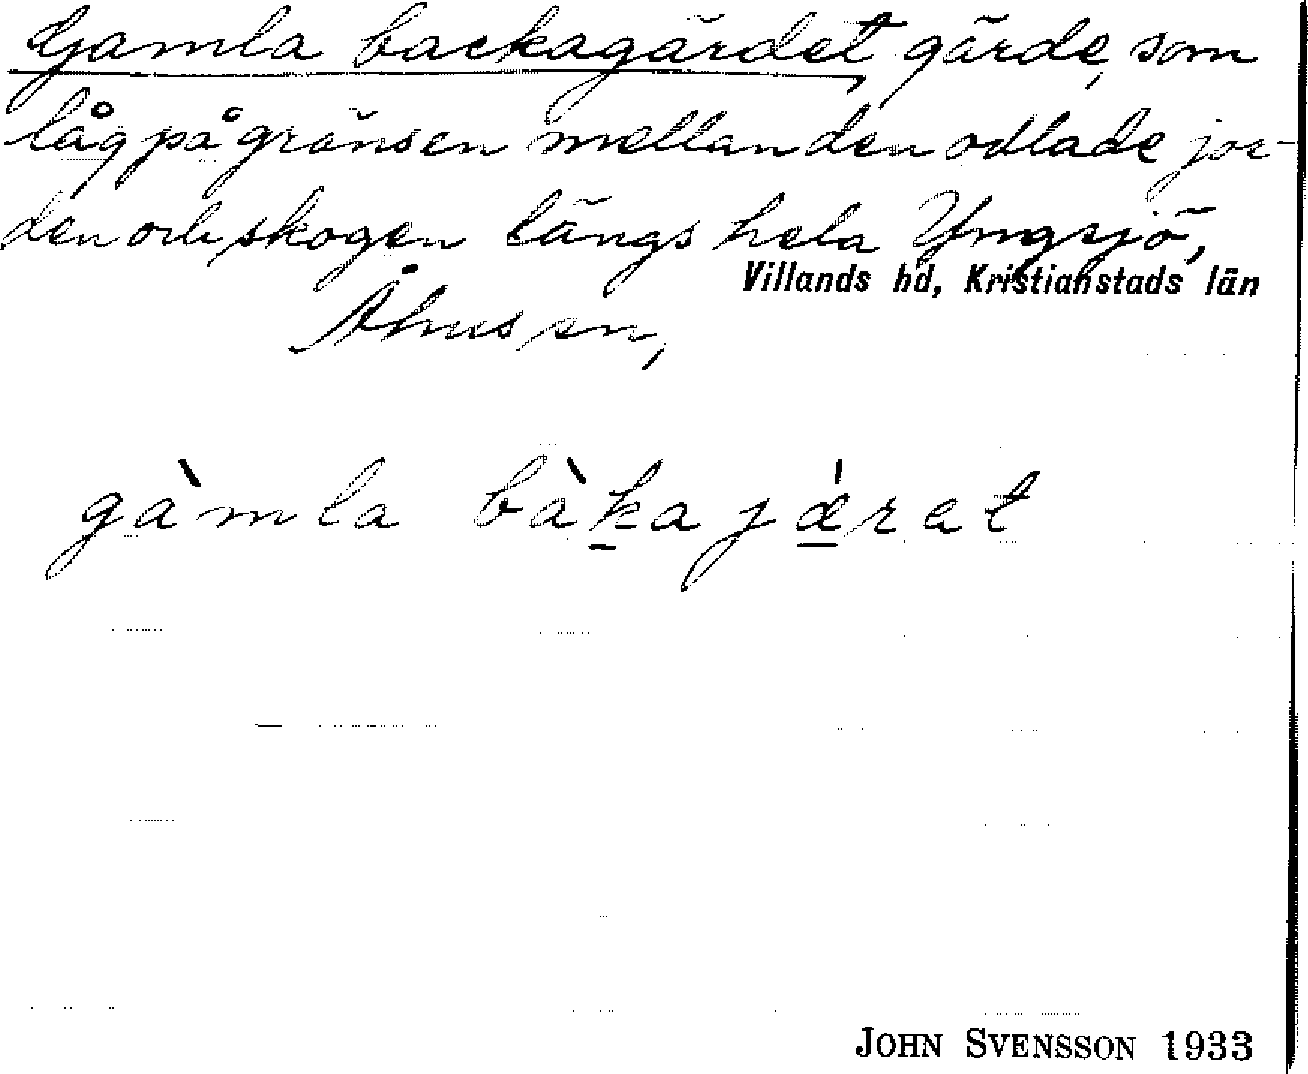 Gamla backagärdet, gärde, som
låg på gränsen mellan den odlade jor-
den och skogen längs hela Yngsjö,
Villands hd, Kristianstads län
Åhus sn,
gàmla bàkajæ̀rat
JOHN SVENSSON 1933